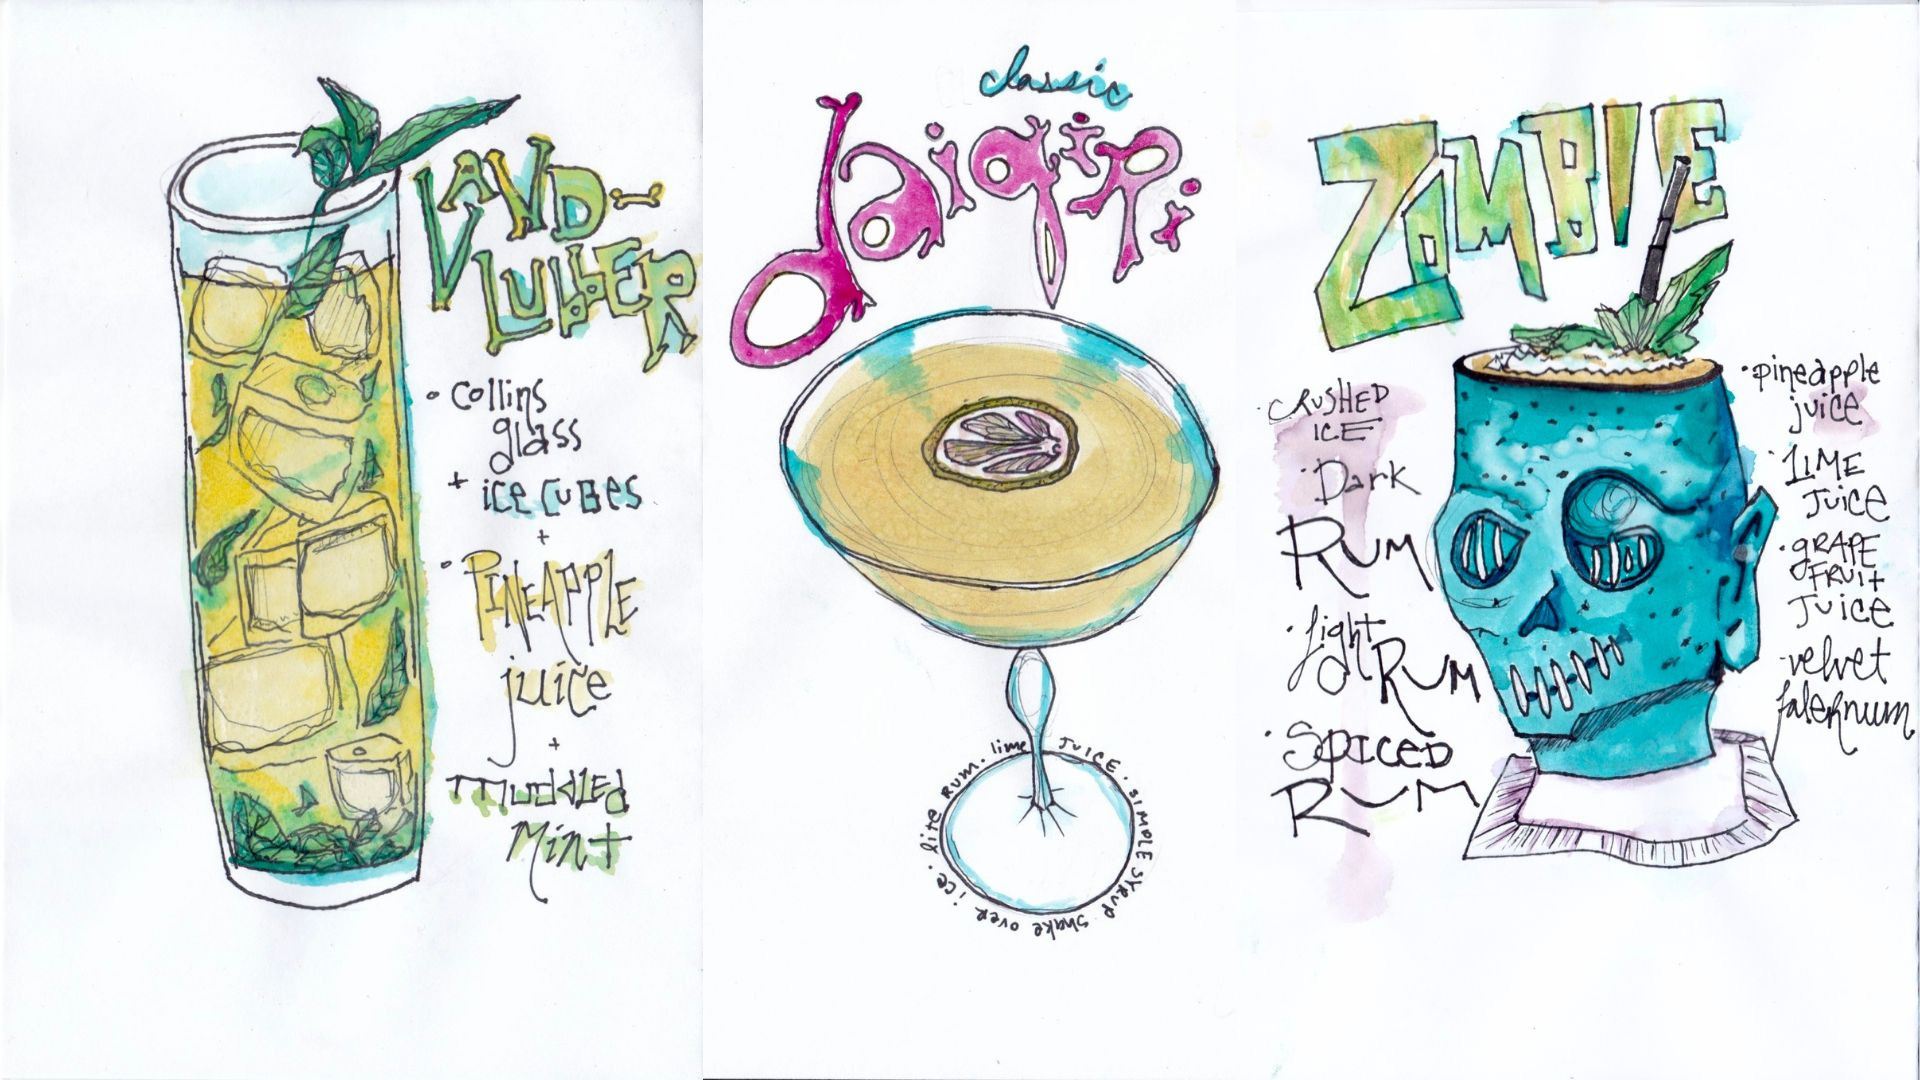 LAND-
LUBBER
• collins
glass
+ ice cubes
+
• PINEAPPLE
juice
+
muddled
Mint
classic
daiqiri
• lite RUM • lime JUICE • SIMPLE SYRUP shake over ice
ZOMBIE
• CRUSHED
ICE
• Dark
RUM
• light
RUM
• SPICED
RUM
• pineapple
juice
• LIME
JUICE
• gRAPE
FRUIT
JUICE
• velvet
falernum